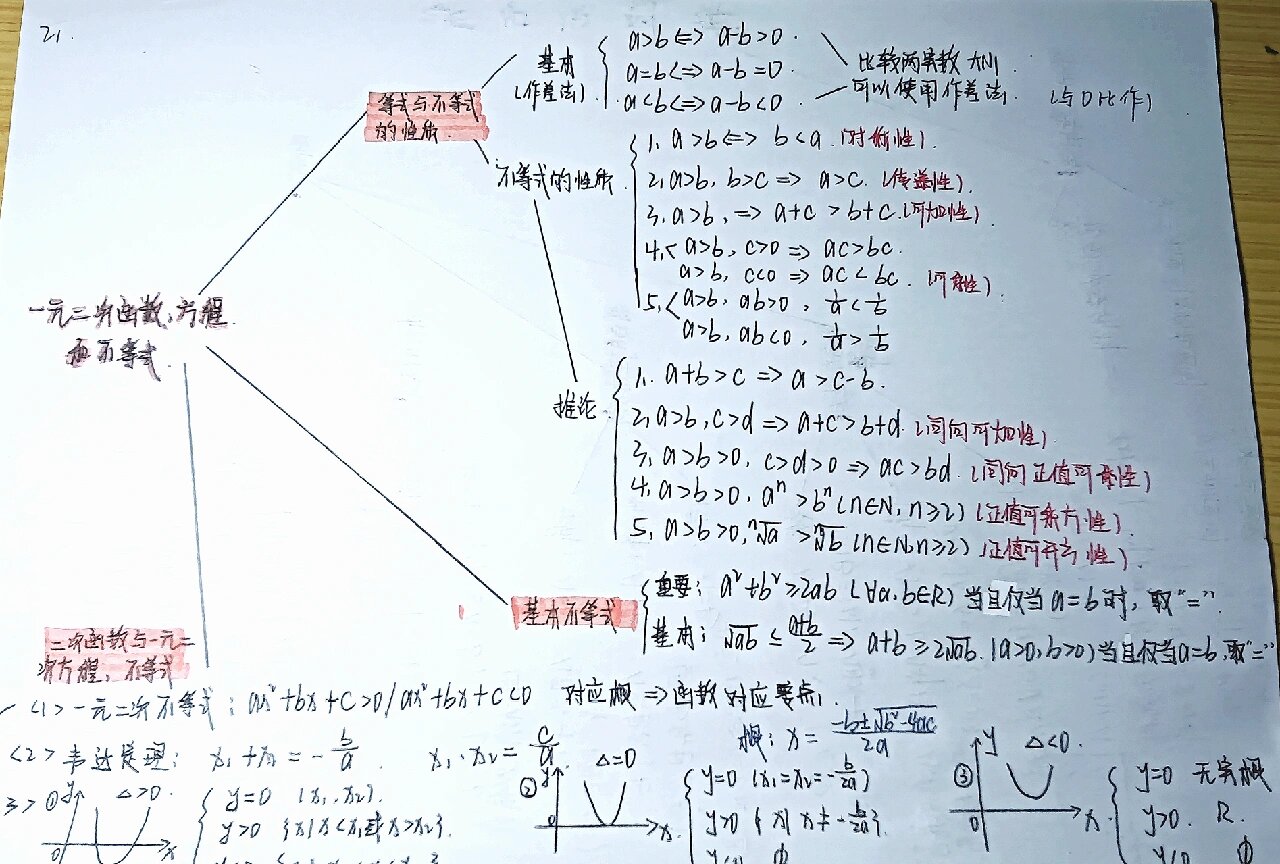 21.
一元二次函数、方程
和不等式
等式与不等式
的性质
基本
(作差法)
a>b⇔a-b>0
a=b⇔a-b=0
a<b⇔a-b<0
比较两实数大小
可以使用作差法. (与0比作)
不等式的性质
1, a>b⇔b<a (对称性).
2, a>b, b>c⇒a>c. (传递性).
3, a>b,⇒a+c>b+c. (可加性)
4, a>b, c>0⇒ac>bc.
a>b, c<0⇒ac<bc. (可乘性)
5, a>b, ab>0, 1/a<1/b
a>b, ab<0, 1/a>1/b
推论
1. a+b>c⇒a>c-b.
2, a>b, c>d⇒a+c>b+d. (同向可加性)
3, a>b>0, c>d>0⇒ac>bd. (同向正值可乘性)
4, a>b>0, aⁿ>bⁿ (n∈N, n≥2) (正值可乘方性).
5, a>b>0, ⁿ√a>ⁿ√b (n∈N, n≥2) (正值可开方性).
基本不等式
重要: a²+b²≥2ab (∀a,b∈R) 当且仅当a=b时, 取"="
基本: √ab≤(a+b)/2⇒a+b≥2√ab. (a>0, b>0) 当且仅当a=b, 取"="
二次函数与一元二
次方程, 不等式
<1>一元二次不等式: ax²+bx+c>0/ax²+bx+c<0 对应根⇒函数对应零点.
<2>韦达定理: x₁+x₂=-b/a. x₁·x₂=c/a 根: x=(-b±√b²-4ac)/2a
3> ① y Δ>0. 0 x
y=0 (x₁, x₂).
y>0 {x|x<x₁或x>x₂}.
② y Δ=0 0 x
y=0 (x₁=x₂=-b/2a)
y>0 {x|x≠-b/2a}
Φ
③ y Δ<0. 0 x
y=0 无实根
y>0. R.
y<0 Φ